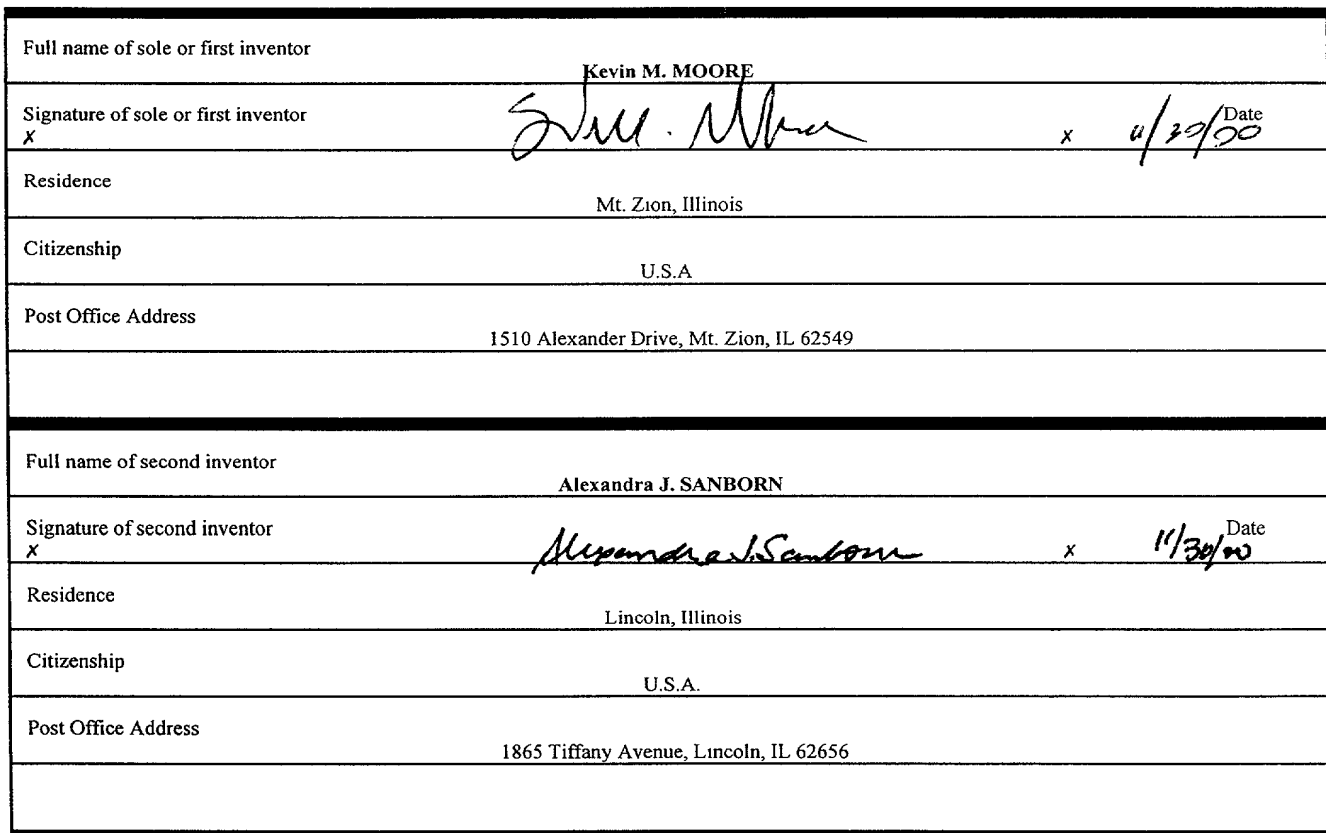 Full name of sole or first inventor
Kevin M. MOORE
Signature of sole or first inventor
x x Date
Residence
Mt. Zion, Illinois
Citizenship
U.S.A
Post Office Address
1510 Alexander Drive, Mt. Zion, IL 62549
Full name of second inventor
Alexandra J. SANBORN
Signature of second inventor
x Alexandra J. Sanborn x 11/30/00 Date
Residence
Lincoln, Illinois
Citizenship
U.S.A.
Post Office Address
1865 Tiffany Avenue, Lincoln, IL 62656